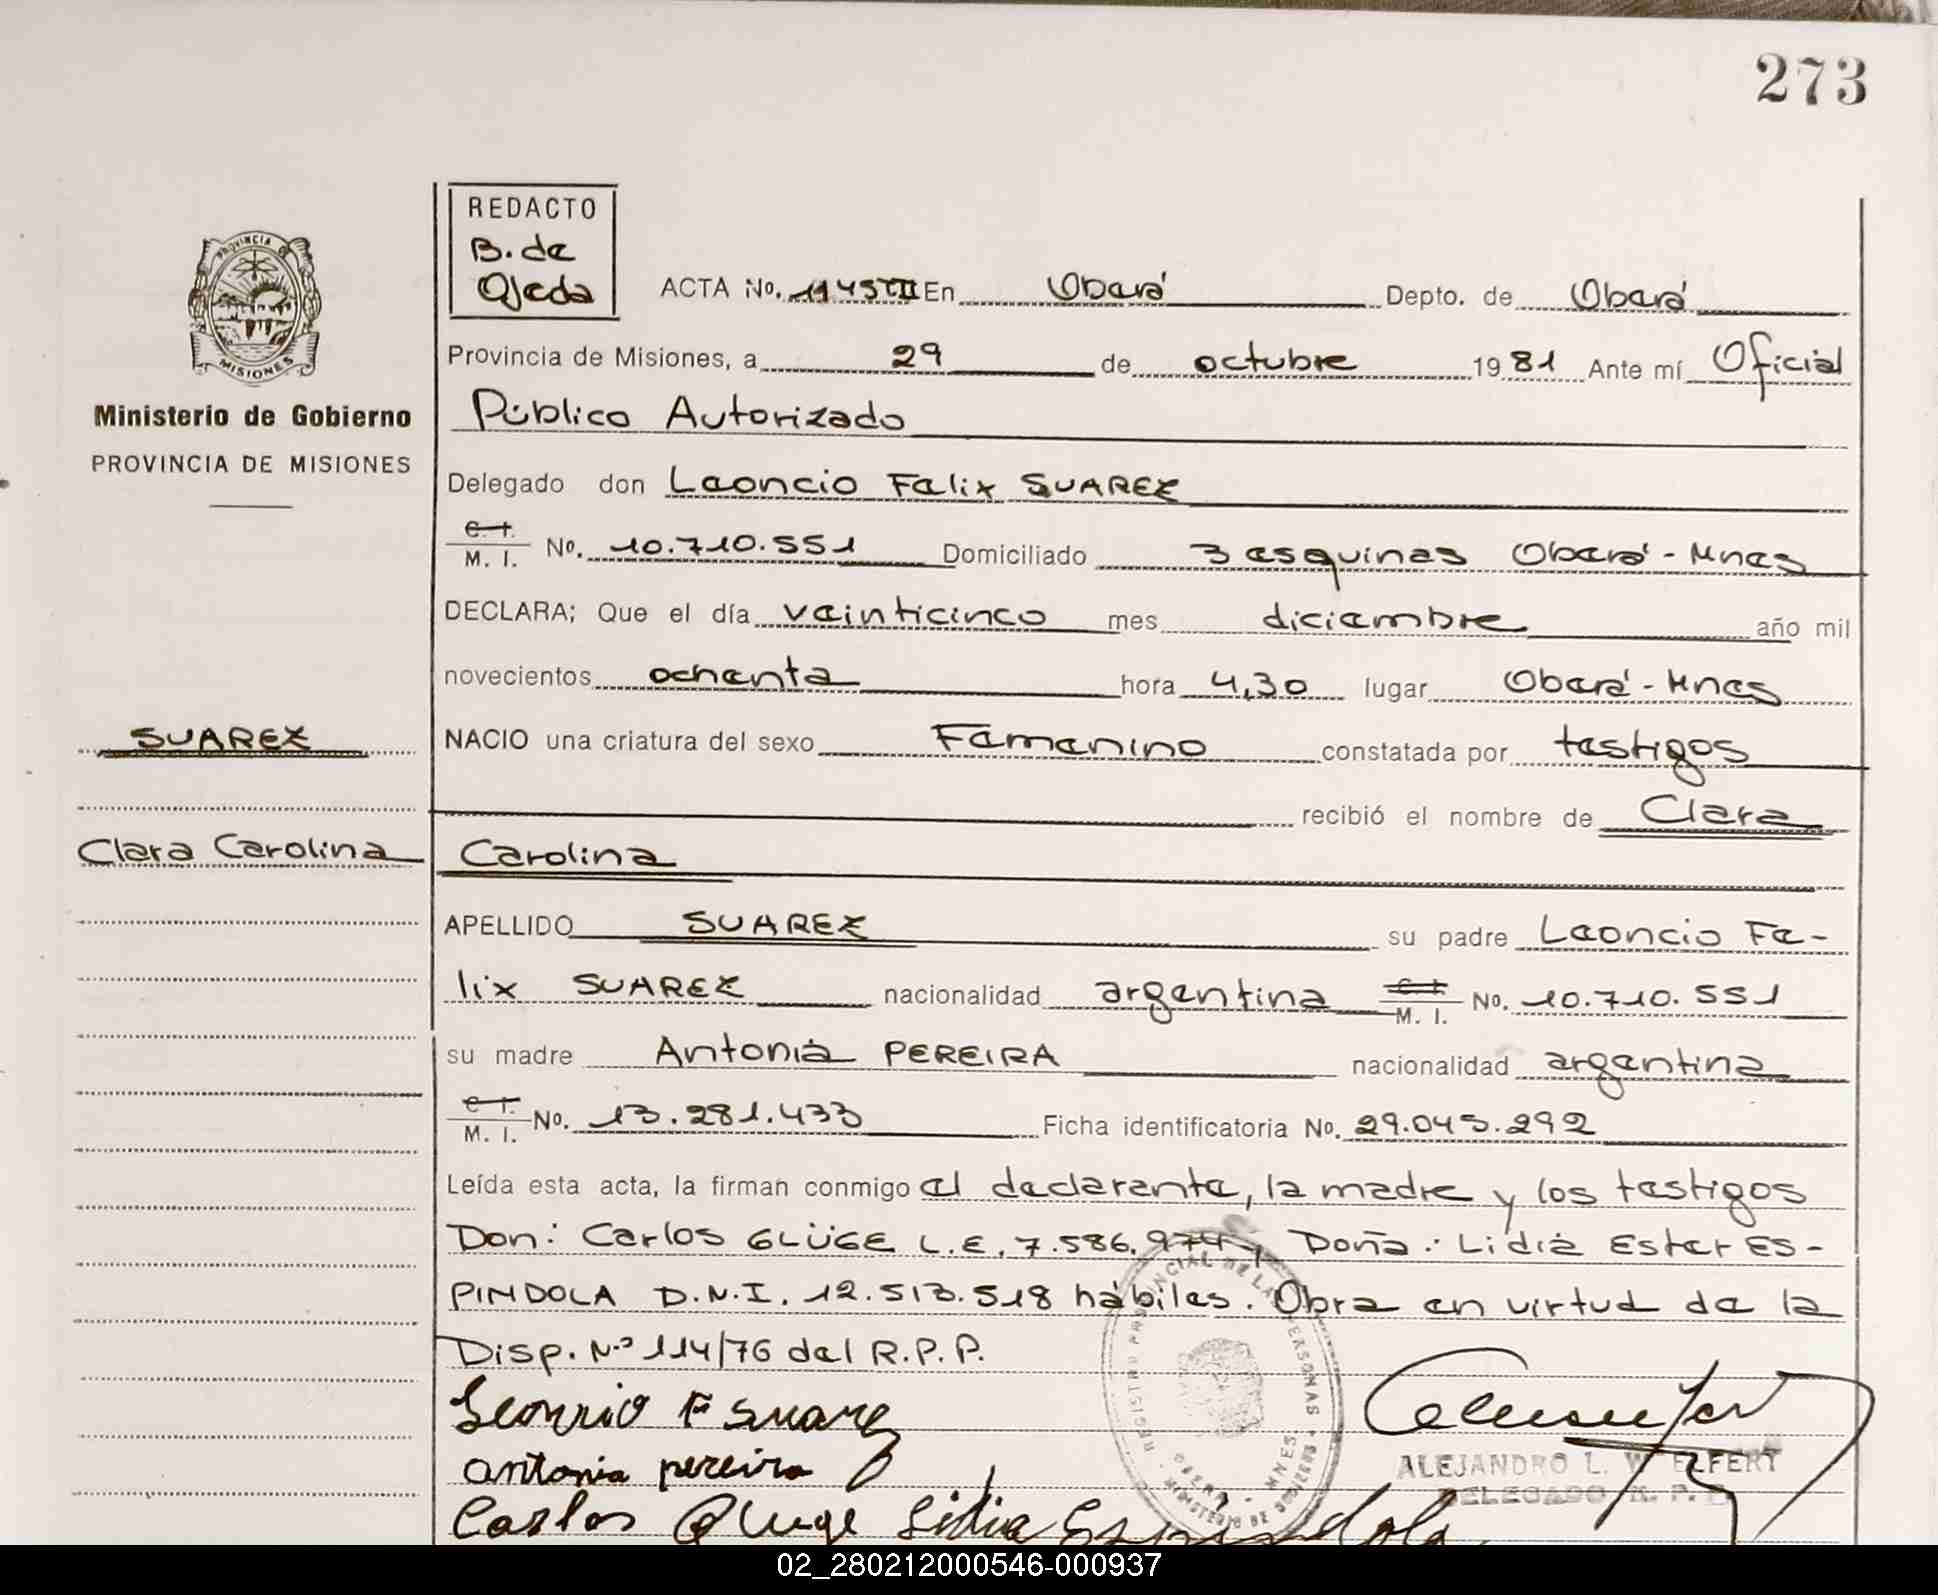 273
REDACTO
B. de
Ojeda
ACTA No. 1145 III En Oberá Depto. de Oberá
Provincia de Misiones, a 29 de octubre 1981 Ante mí Oficial
Público Autorizado
Delegado don Leoncio Felix SUAREZ
C. I.
M. I. No. 10.710.551 Domiciliado 3 esquinas Oberá - Mnes
DECLARA; Que el día veinticinco mes diciembre año mil
novecientos ochenta hora 4,30 lugar Oberá - Mnes
NACIO una criatura del sexo Femenino constatada por testigos
recibió el nombre de Clara
Carolina
APELLIDO SUAREZ su padre Leoncio Fe-
lix SUAREZ nacionalidad argentina C. I. M. I. No. 10.710.551
su madre Antonia PEREIRA nacionalidad argentina
C. I.
M. I. No. 13.281.433 Ficha identificatoria No. 29.045.292
Leída esta acta, la firman conmigo el declarante, la madre y los testigos
Don: Carlos GLÜGE L.E. 7.586.974 y Doña: Lidia Ester ES-
PINDOLA D.N.I. 12.513.518 hábiles. Obra en virtud de la
Disp. Nº 114/76 del R.P.P.
Leoncio F Suarez
antonia pereira
Carlos Gluge Lidia Espindola
PROVINCIA DE
MISIONES
Ministerio de Gobierno
PROVINCIA DE MISIONES
SUAREZ
Clara Carolina
REGISTRO PROVINCIAL DE LAS PERSONAS
OBERA - MNES
MINISTERIO DE GOBIERNO
ALEJANDRO L. WELFERT
DELEGADO R. P. P.
02_280212000546-000937